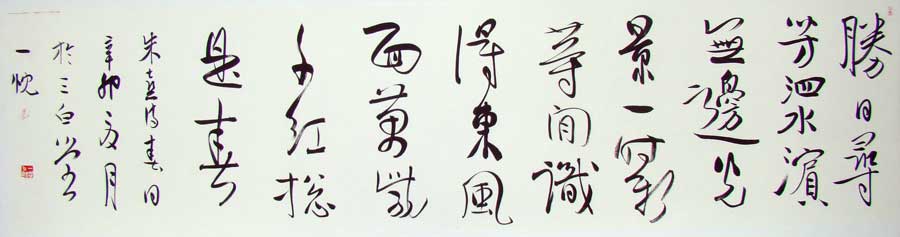 勝日尋
芳泗水濱
無邊光
景一時新
等閒識
得東風
面萬紫
千紅總
是春
朱熹詩春日
辛卯夏月
於三白堂
一